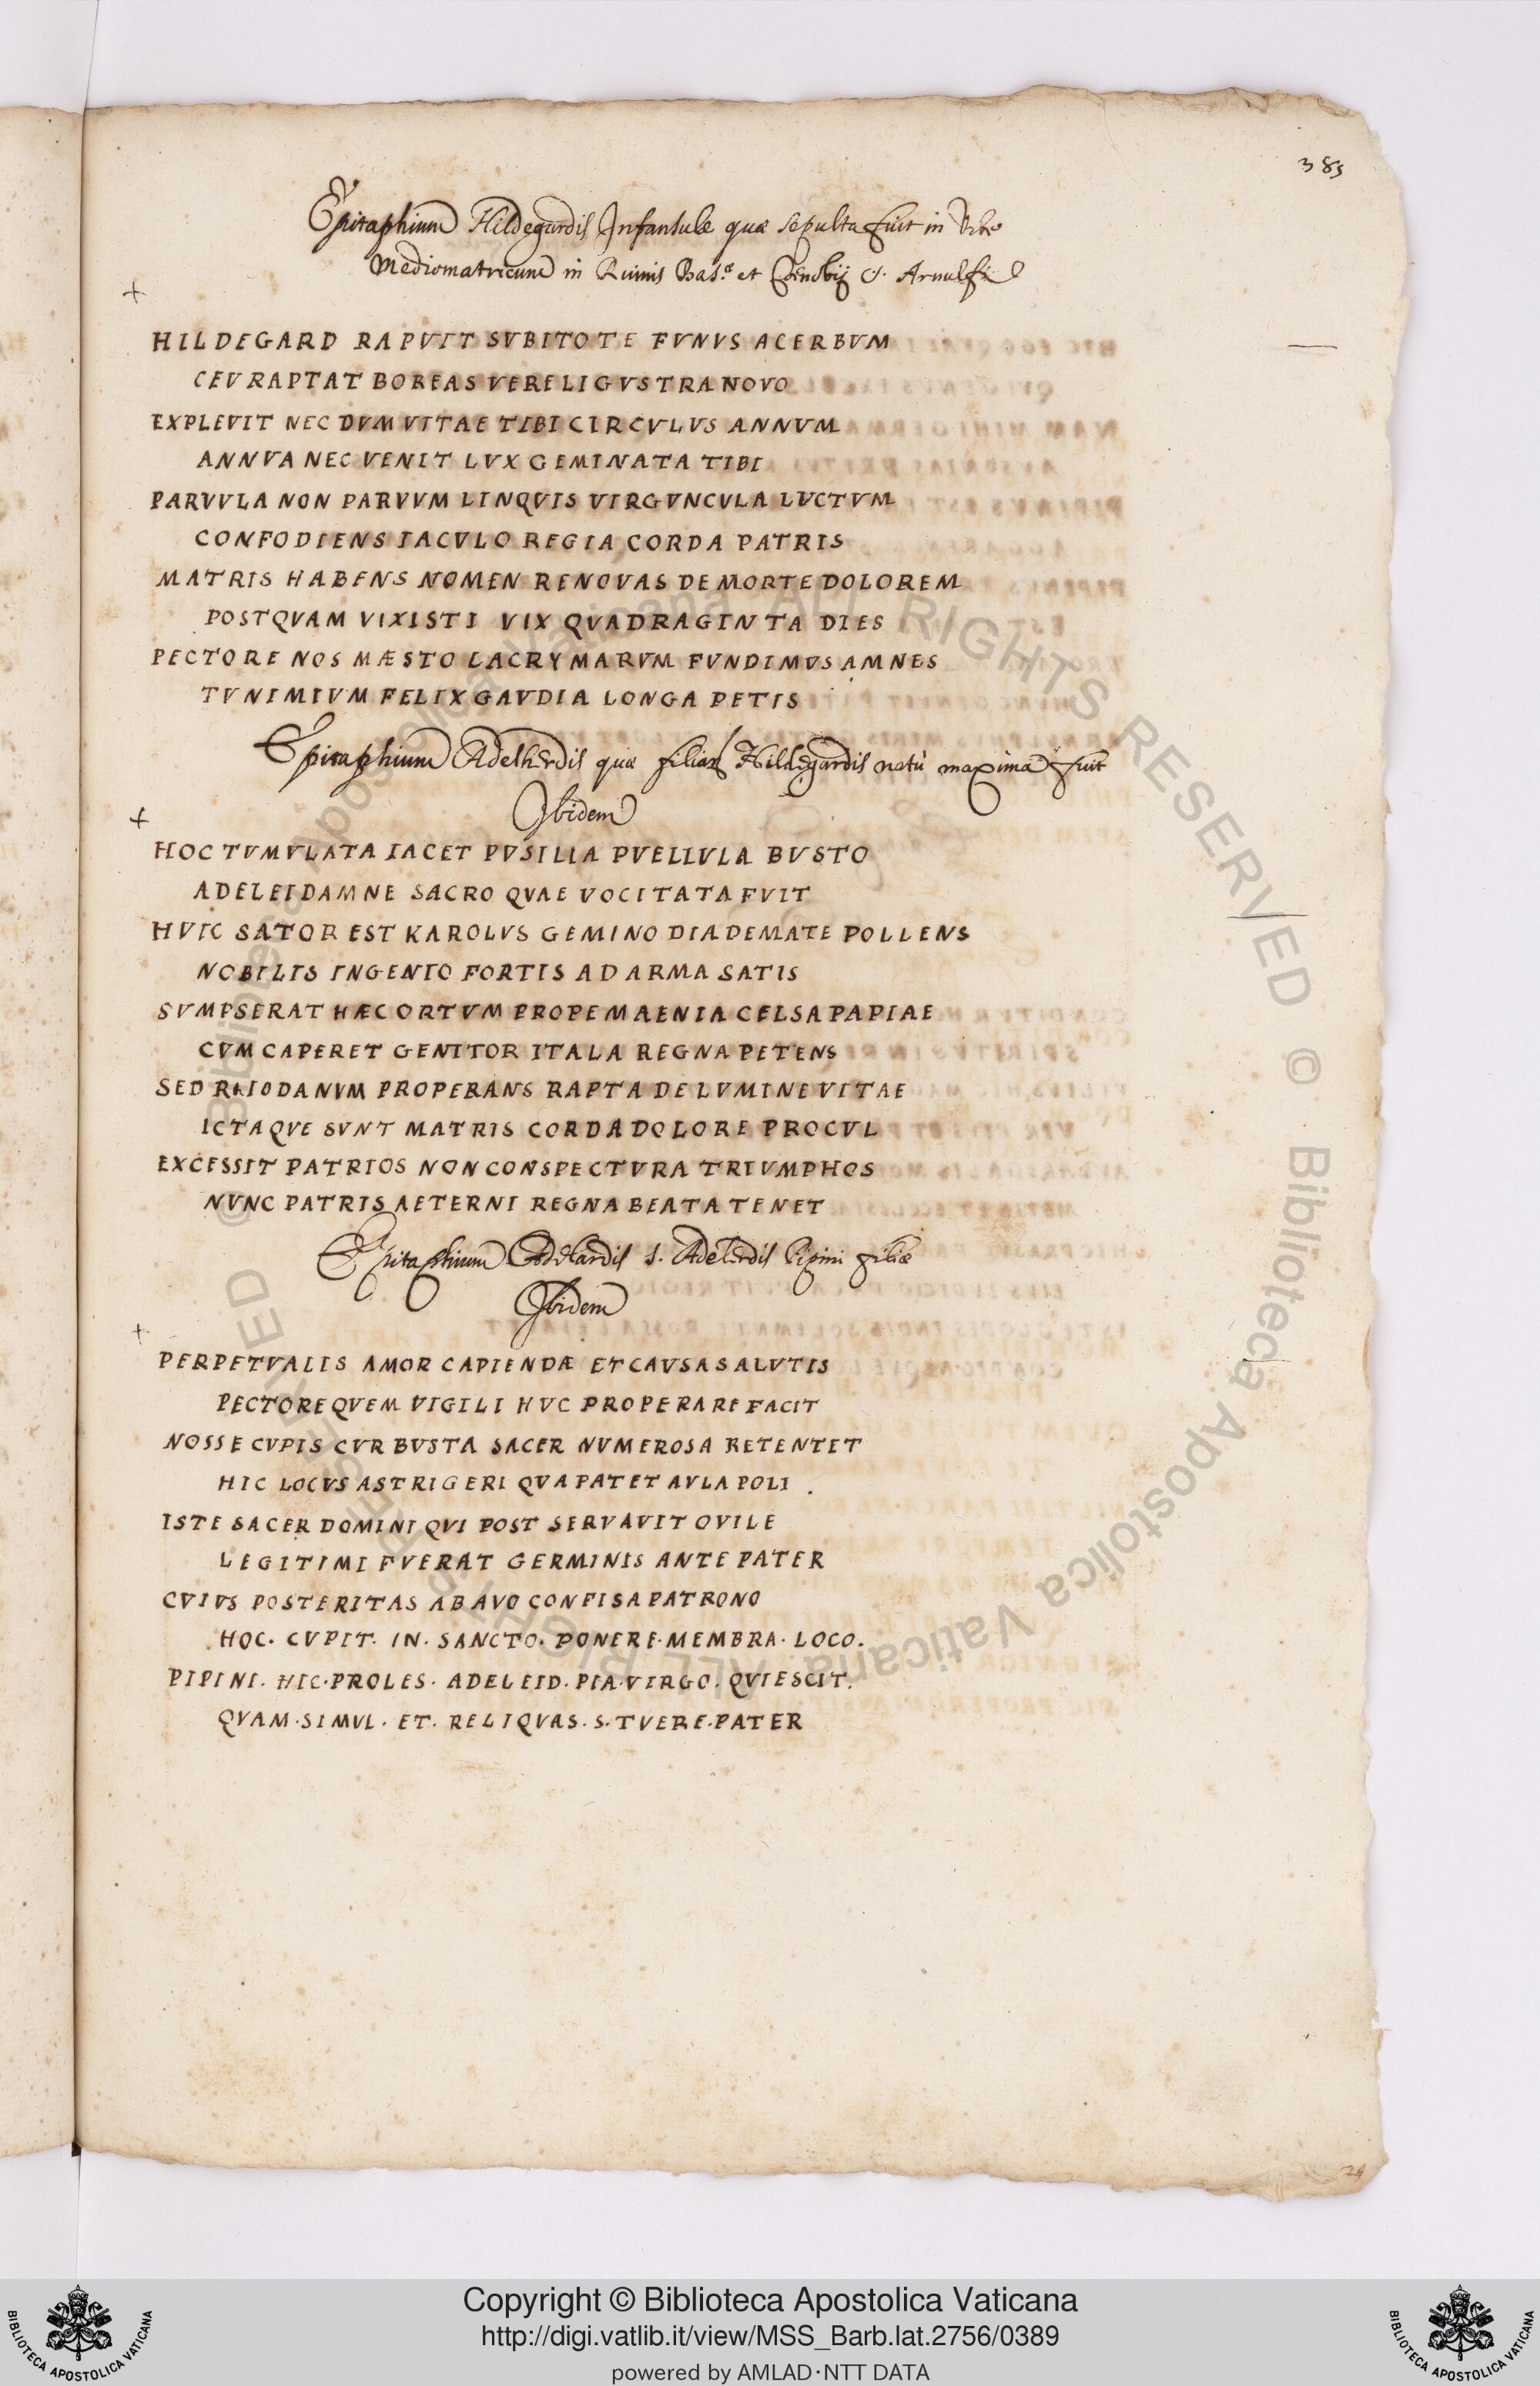 385
Epitaphium Hildegardis Infantule quæ sepulta fuit in Urbe
Mediomatricum in Ruinis Bas.æ et Cenobij S. Arnulfi
+
HILDEGARD RAPVIT SVBITO TE FVNVS ACERBVM
CEV RAPTAT BOREAS VERE LIGVSTRA NOVO
EXPLEVIT NEC DVM VITAE TIBI CIRCVLVS ANNVM
ANNVA NEC VENIT LVX GEMINATA TIBI
PARVVLA NON PARVVM LINQVIS VIRGVNCVLA LVCTVM
CONFODIENS IACVLO REGIA CORDA PATRIS
MATRIS HABENS NOMEN RENOVAS DE MORTE DOLOREM
POSTQVAM VIXISTI VIX QVADRAGINTA DIES
PECTORE NOS MÆSTO LACRYMARVM FVNDIMVS AMNES
TV NIMIVM FELIX GAVDIA LONGA PETIS
Epitaphium Adelherdis quæ filiar Hildegardis natù maxima fuit
Ibidem
+
HOC TVMVLATA IACET PVSILLA PVELLVLA BVSTO
ADELEIDAMNE SACRO QVAE VOCITATA FVIT
HVIC SATOR EST KAROLVS GEMINO DIADEMATE POLLENS
NOBILIS INGENIO FORTIS AD ARMA SATIS
SVMPSERAT HÆC ORTVM PROPE MAENIA CELSA PAPIAE
CVM CAPERET GENITOR ITALA REGNA PETENS
SED RHODANVM PROPERANS RAPTA DE LVMINE VITAE
ICTAQVE SVNT MATRIS CORDA DOLORE PROCVL
EXCESSIT PATRIOS NON CONSPECTVRA TRIVMPHOS
NVNC PATRIS AETERNI REGNA BEATA TENET
Epitaphium s. Adelerdis Pipini filiæ
Ibidem
+
PERPETVALIS AMOR CAPIENDÆ ET CAVSA SALVTIS
PECTORE QVEM VIGILI HVC PROPERARE FACIT
NOSSE CVPIS CVR BVSTA SACER NVMEROSA RETENTET
HIC LOCVS ASTRIGERI QVA PATET AVLA POLI .
ISTE SACER DOMINI QVI POST SERVAVIT OVILE
LEGITIMI FVERAT GERMINIS ANTE PATER
CVIVS POSTERITAS AB AVO CONFISA PATRONO
HOC. CVPIT. IN. SANCTO. PONERE. MEMBRA. LOCO.
PIPINI. HIC. PROLES. ADELEID. PIA. VIRGO. QVIESCIT.
QVAM. SIMVL. ET. RELIQVAS. S. TVERE. PATER
Copyright © Biblioteca Apostolica Vaticana
http://digi.vatlib.it/view/MSS_Barb.lat.2756/0389
powered by AMLAD·NTT DATA
BIBLIOTECA APOSTOLICA VATICANA
BIBLIOTECA APOSTOLICA VATICANA
© Biblioteca Apostolica Vaticana ALL RIGHTS RESERVED
© Biblioteca Apostolica Vaticana ALL RIGHTS RESERVED